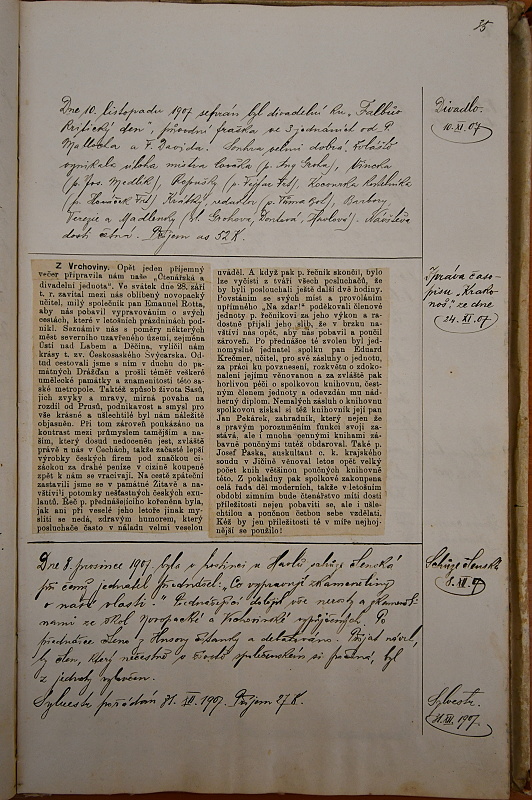 35
Dne 10. listopadu 1907 sehrán byl divadelní kus „Falbův
kritický den“, původní fraška ve 3 jednáních od P.
a F. Davida. Souhra velmi dobrá. Zvláště
vynikala úloha mistra
(p. Jos. Medlík),
redaktor Barbory,
Terezie a Madlenky Návštěva
dosti četná. Příjem as 52 K.
Divadlo.
10. XI. 07
Z Vrchoviny. Opět jeden příjemný
večer připravila nám naše "Čtenářská a
divadelní jednota". Ve svátek dne 28. září
t. r. zavítal mezi nás oblíbený novopacký
učitel, milý společník pan Emanuel Rotta,
aby nás pobavil vypravováním o svých
cestách, které v letošních prázdninách pod-
nikl. Seznámiv nás s poměry některých
měst severního uzavřeného území, zejména
Ústí nad Labem a Děčína, vylíčil nám
krásy t. zv. Českosaského Švýcarska. Od-
tud cestovali jsme s ním v duchu do pa-
mátných Drážďan a prošli téměř veškeré
umělecké památky a znamenitosti této sa-
ské metropole. Taktéž způsob života Sasů,
jich zvyky a mravy, mírná povaha na
rozdíl od Prusů, podnikavost a smysl pro
vše krásné a šlechetné byl nám náležitě
objasněn. Při tom zároveň poukázáno na
kontrast mezi průmyslem tamějším a na-
ším, který dosud nedoceněn jest, zvláště
právě u nás v Čechách, takže začasté lepší
výrobky českých firem pod značkou ci-
záckou za drahé peníze v cizině koupené
zpět k nám se vracívají. Na cestě zpáteční
zastavili jsme se v památné Žitavě a na-
vštívili potomky nešťastných českých exu-
lantů. Řeč p. přednášejícího kořeněna byla,
jak ani při veselé jeho letoře jinak my-
sliti se nedá, zdravým humorem, který
posluchače často v náladu velmi veselou
uváděl. A když pak p. řečník skončil, bylo
lze vyčísti z tváří všech posluchačů, že
by byli poslouchali ještě další dvě hodiny.
Povstáním se svých míst a provoláním
upřímného „Na zdar!“ poděkovali členové
jednoty p. řečníkovi za jeho výkon a ra-
dostně přijali jeho slib, že v brzku na-
vštíví nás opět, aby nás pobavil a poučil
zároveň. Po přednášce té zvolen byl jed-
nomyslně jednatel spolku pan Eduard
Krečmer, učitel, pro své zásluhy o jednotu,
za práci ku povznesení, rozkvětu a zdoko-
nalení jejímu věnovanou a za zvláště pak
horlivou péči o spolkovou knihovnu, čest-
ným členem jednoty a odevzdán mu nád-
herný diplom. Nemalých zásluh o knihovnu
spolkovou získal si též knihovník její pan
Jan Pekárek, zahradník, který nejen že
s pravým porozuměním funkci svoji za-
stává, ale i mnoha cennými knihami zá-
bavně poučnými tutéž obdaroval. Také p.
Josef Paska, auskultant c. k. krajského
soudu v Jičíně věnoval letos opět velký
počet knih většinou poučných knihovně
této. Z pokladny pak spolkové zakoupena
celá řada děl moderních, takže v letošním
období zimním bude čtenářstvo míti dosti
příležitosti nejen pobaviti se, ale i ušle-
chtilou a poučnou četbou sebe vzdělati.
Kéž by jen příležitosti té v míře nejhoj-
nější se použilo!
Zpráva časo-
pisu „Krako-
noš“ ze dne
24. XI. 07
Dne 8. prosince 1907. byla v hostinci u Havlů schůze členská
při čemž jednatel přednášel: „Co vypravují zkameněliny
o naší vlasti.“ Přednášející doložil vše nerosty a zkameněli-
nami ze škol Novopacké a Vrchovinské vypůjčených. Po
přednášce čteno z Husovy a debatováno. Přijat návrh,
by člen, který nečestně v životě společenském si počíná, byl
z jednoty vyloučen.
Sylvestr pořádán 31. XII. 1907. Příjem 27 K.
Schůze členská
8. XII. 07
Sylvestr.
31. XII. 1907.